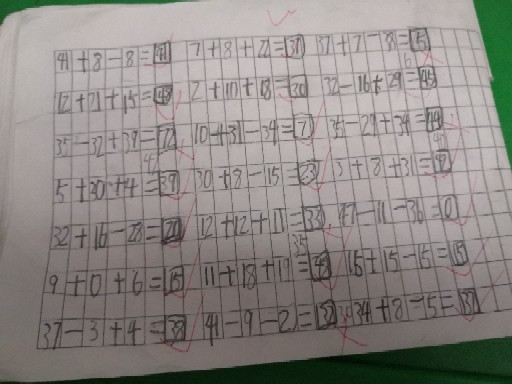 41+8-8=41 7+8+22=37 37+7-8=
12+21+15=48 2+10+18=30 32-16+29=45
35-32+39= 10+31-34=7 35-29+34=
5+30+4=39 30+8-15=23 3+8+31=
32+16-28=20 12+12+11=33 47-11-36=0
9+0+6=15 11+18+19=48 15+15-15=15
37-3+4=38 41-9-2= 34+8-15=